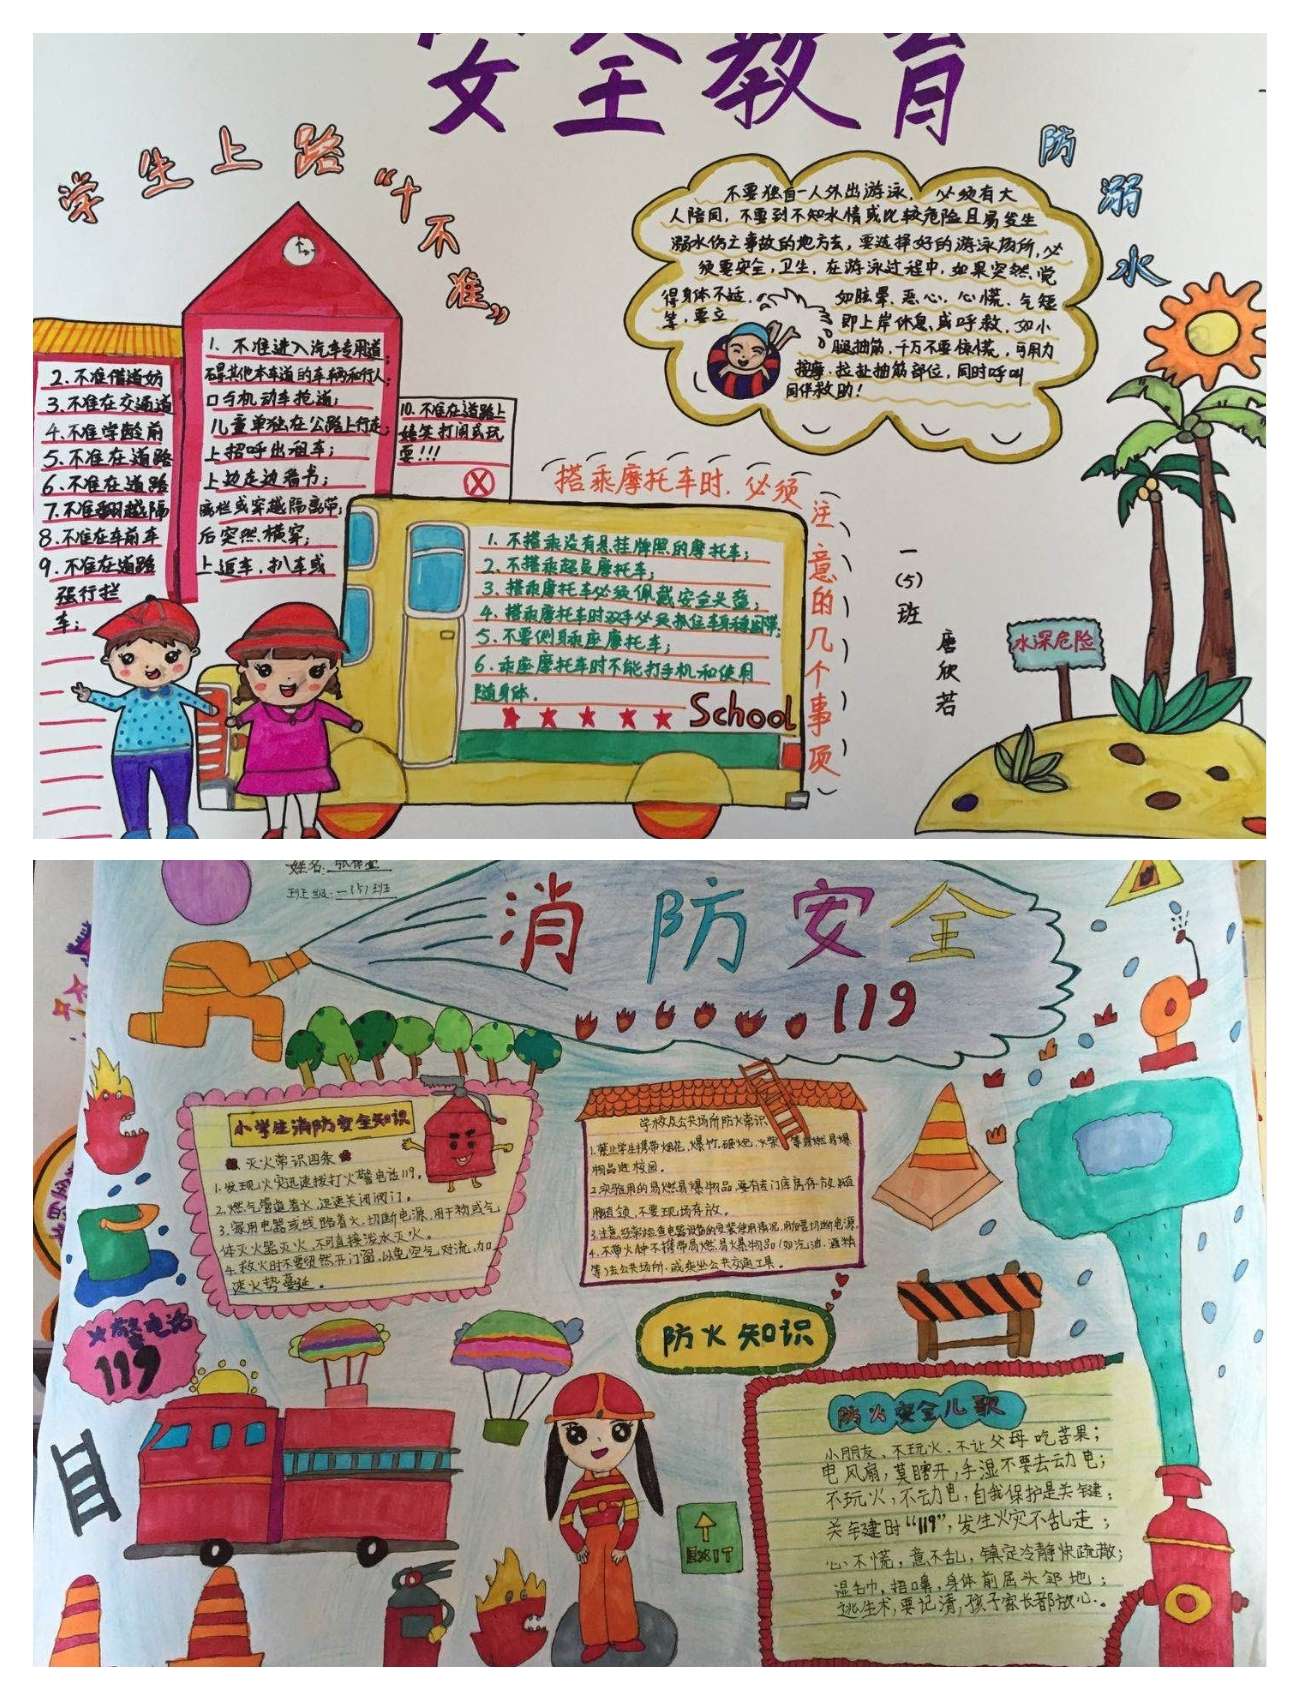 安全教育
学生上路“十不准”
1. 不准进入汽车专用道;
2.不准借道妨碍其他本车道的车辆和行人;
3.不准在交通道口与机动车抢道;
4.不准学龄前儿童单独在公路上行走;
5.不准在道路上招呼出租车;
6.不准在道路上边走边看书;
7.不准翻越隔离栏或穿越隔离带;
8.不准在车前车后突然横穿;
9.不准在道路上追车.扒车或
强行拦
车;
10.不准在道路上
嬉笑打闹或玩
耍!!!
防溺水
不要独自一人外出游泳, 必须有大
人陪同,不要到不知水情或比较危险且易发生
溺水伤亡事故的地方去,要选择好的游泳场所,必
须要安全,卫生.在游泳过程中,如果突然觉
得身体不适.如眩晕.恶心.心慌.气短
等.要立即上岸休息或呼救,如小
腿抽筋,千万不要惊慌,可用力
按摩.拉扯抽筋部位,同时呼叫
同伴救助!
搭乘摩托车时.必须注意的几个事项
1.不搭乘没有悬挂牌照的摩托车;
2.不搭乘超员摩托车;
3.搭乘摩托车必须佩戴安全头盔;
4.搭乘摩托车时双手必须抓住车身
5.不要侧身乘座摩托车;
6.乘座摩托车时不能打手机和使用
随身体.
School
一(5)班
唐欣若
水深危险
姓名:
班级:一(5)班
消防安全
119
小学生消防安全知识
灭火常识四条
1.发现火灾迅速拨打火警电话119.
2.燃气管道着火,迅速关闭阀门.
3.家用电器或线路着火,切断电源.用干粉或气
体灭火器灭火,不可直接泼水灭火.
4.救火时不要贸然开门窗,以免空气对流,加
速火势蔓延.
学校及公共场所防火常识
1.禁止学生携带烟花,爆竹,砸炮,火柴等易燃易爆
物品进校园.
2.实验用的易燃易爆物品,要有专门库房存放,随
用随领,不要现场存放.
3.注意经常检查电器设备的安装使用情况,切断电源.
4.不带火种不携带易燃易爆物品(如汽油.酒精
等)去公共场所.或乘坐公共交通工具.
火警电话
119
防火知识
防火安全儿歌
小朋友、不玩火、不让父母吃苦果;
电风扇,莫瞎开,手湿不要去动电;
不玩火,不动电,自我保护是关键;
关键时“119”,发生火灾不乱走;
心不慌,意不乱,镇定冷静快疏散;
湿毛巾,捂口鼻,身体前屈头邻地;
逃生术,要记清,孩子家长都放心.
EXIT